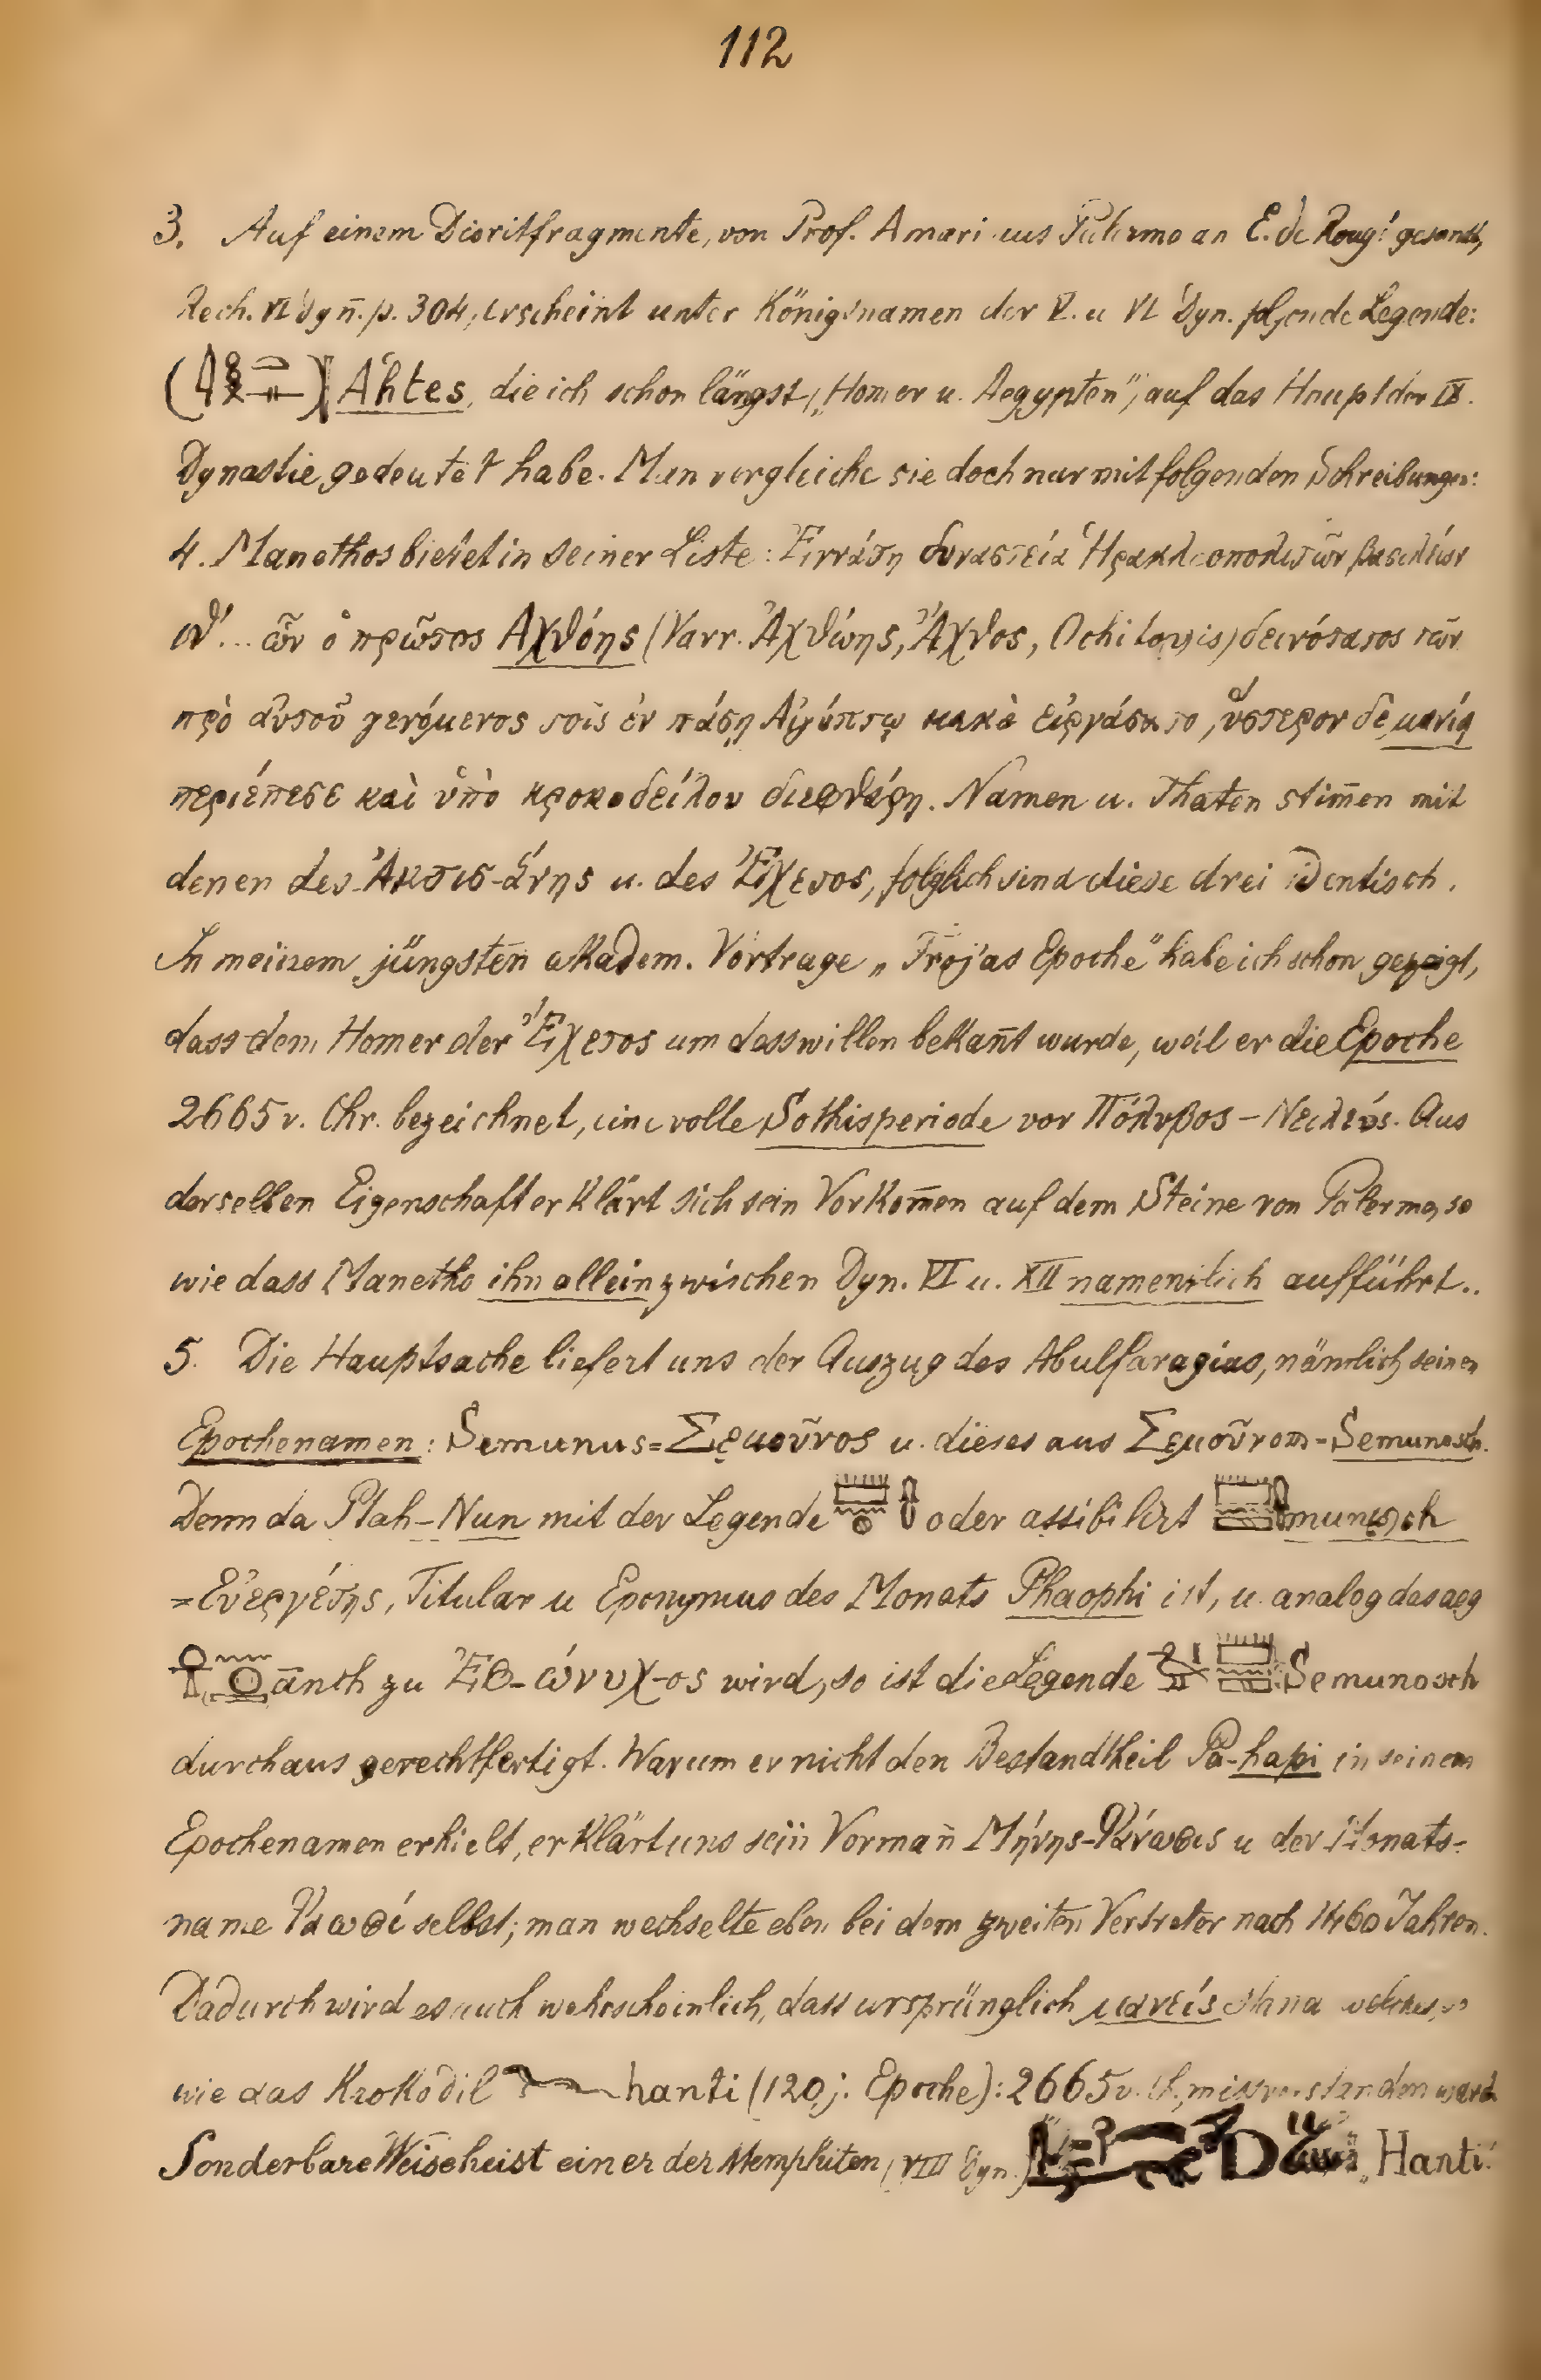 112
3. Auf einem Dioritfragmente, von Prof. Amari aus Palermo an E. de Rougé gesandt,
Rech. VI Dyn̄. p. 304, erscheint unter Königsnamen der V. u VI Dyn. folgende Legende:
Áhtes, die ich schon längst („Homer u. Aegypten“) auf das Haupt der IX.
Dynastie gedeutet habe. Man vergleiche sie doch nur mit folgenden Schreibungen:
4. Manethos bietet in seiner Liste: Ἐννάτη δυναστεία Ἡρακλεοπολιτῶν βασιλέων
ιθ΄... ὧν ὁ πρῶτος Αχθόης (Varr. Ἀχθώης, Ἄχθος, Ochitoyis) δεινότατος τῶν
πρὸ αὐτοῦ γενόμενος τοῖς ἐν πάσῃ Αἰγύπτῳ κακὰ εἰργάσατο, ὕστερον δὲ μανίᾳ
περιέπεσε καὶ ὑπὸ κροκοδείλου διεφθάρη. Namen u. Thaten stim̄en mit
denen des Ἀκτισ-άνης u. des Ἔχετος, folglich sind diese drei identisch.
In meinem jüngsten akadem. Vortrage „Trojas Epoche“ habe ich schon gezeigt,
dass dem Homer der Ἔχετος um desswillen bekan̄t wurde, weil er die Epoche
2665 v. Chr. bezeichnet, eine volle Sothisperiode vor Πόλυβος – Νειλεύς. Aus
derselben Eigenschaft erklärt sich sein Vorkom̄en auf dem Steine von Palermo, so
wie dass Manetho ihn allein zwischen Dyn. VI u. XII namentlich aufführt..
5. Die Hauptsache liefert uns der Auszug des Abulfaragius, nämlich seinen
Epochenamen: Semunus = Σεμοῦνος u. dieses aus Σεμοῦνοσι - Semunosch.
Denn da Ptah-Nun mit der Legende oder assibilirt munosch
= Εὐεργέτης, Titular u Eponymus des Monats Phaophi ist, u. analog das aeg
ānch zu Ἐθ-ώνυχ-ος wird, so ist die Legende Semunosch
durchaus gerechtfertigt. Warum er nicht den Bestandtheil Pa-hapi in seinem
Epochenamen erhielt, erklärt uns sein Vorman̄ Μήνης-Φάνωφις u der Monats-
name Φαωφί selbst; man wechselte eben bei dem zweiten Vertreter nach 1460 Jahren.
Dadurch wird es auch wahrscheinlich, dass ursprünglich μανείς stand welches, so
wie das Krokodil hanti (120j. Epoche): 2665 v. Ch, missverstanden ward
Sonderbare Weise heist einer der Memphiten (VIII Dyn.) „Hanti“